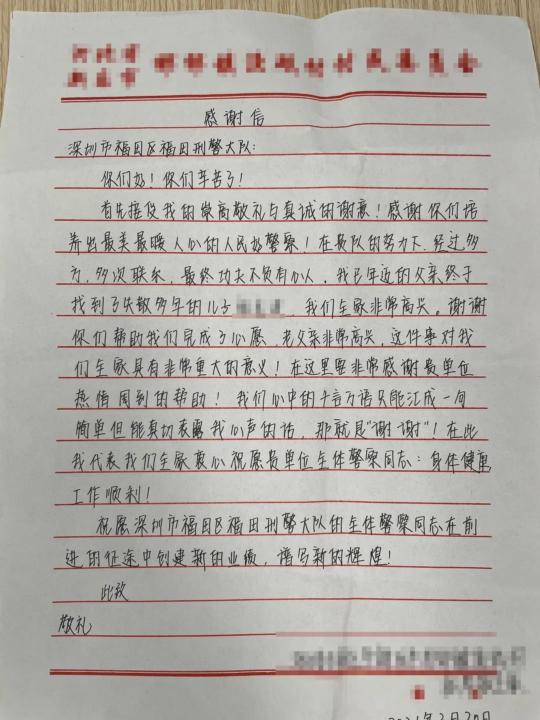 感谢信
深圳市福田区福田刑警大队:
你们好!你们辛苦了!
首先接受我的崇高敬礼与真诚的谢意!感谢你们培
养出最美最暖人心的人民好警察!在贵队的努力下.经过多
方,多次联系,最终功夫不负有心人,我已年迈的父亲终于
找到了失散多年的儿子 ,我们全家非常高兴。谢谢
你们帮助我们完成了心愿,老父亲非常高兴,这件事对我
们全家具有非常重大的意义!在这里要非常感谢贵单位
热情周到的帮助!我们心中的千言万语只能汇成一句
简单但能真切表露我心声的话,那就是“谢谢”!在此
我代表我们全家衷心祝愿贵单位全体警察同志:身体健康
工作顺利!
祝愿深圳市福田区福田刑警大队的全体警察同志在前
进的征途中创建新的业绩,谱写新的辉煌!
此致
敬礼